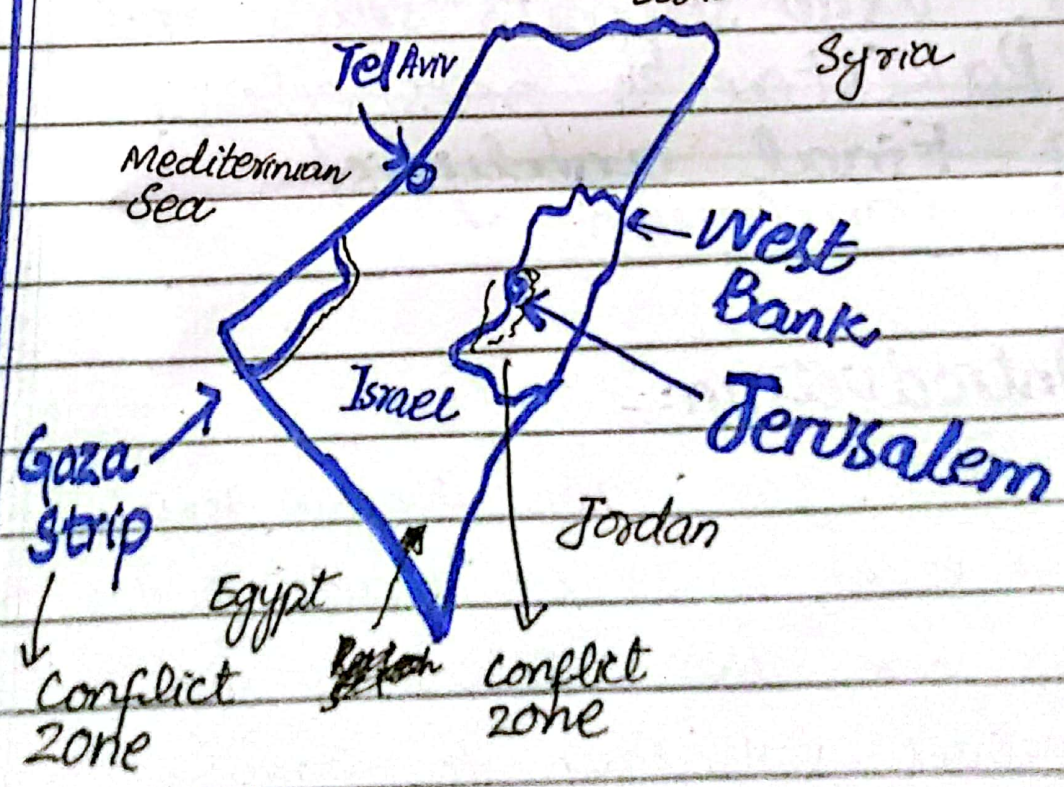 Tel Aviv
Syria
Mediterinian
Sea
West
Bank
Israel
Jerusalem
Gaza
Strip
Jordan
Egypt
Conflict
zone
Conflict
zone